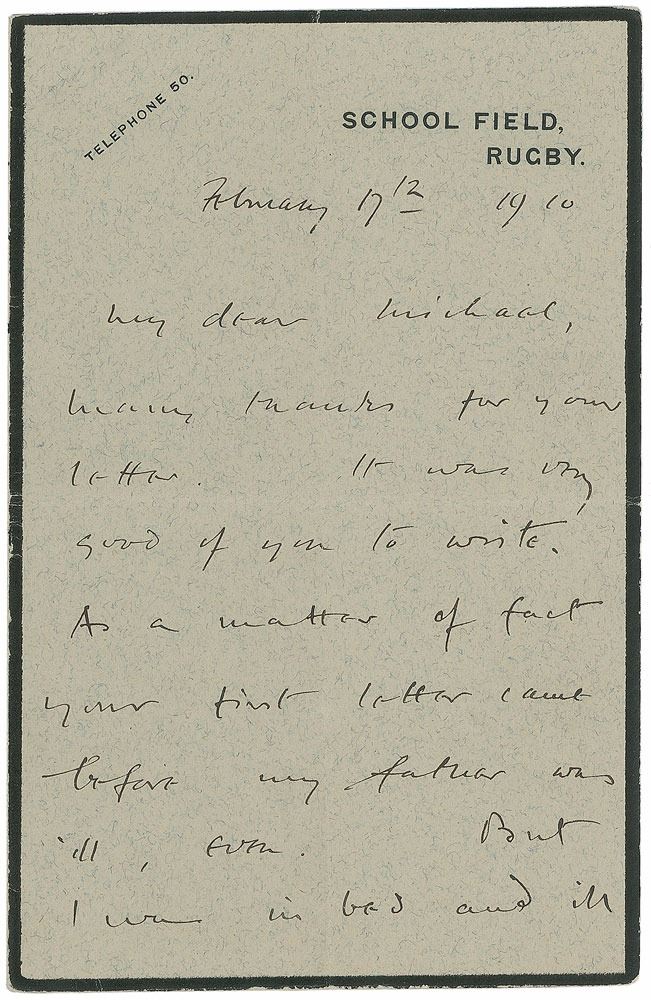 TELEPHONE 50.
SCHOOL FIELD,
RUGBY.
February 17th 1910
My dear Michael,
Many thanks for your
letter. It was very
good of you to write.
As a matter of fact
your first letter came
before my father was
ill, even. But
I was in bed and ill